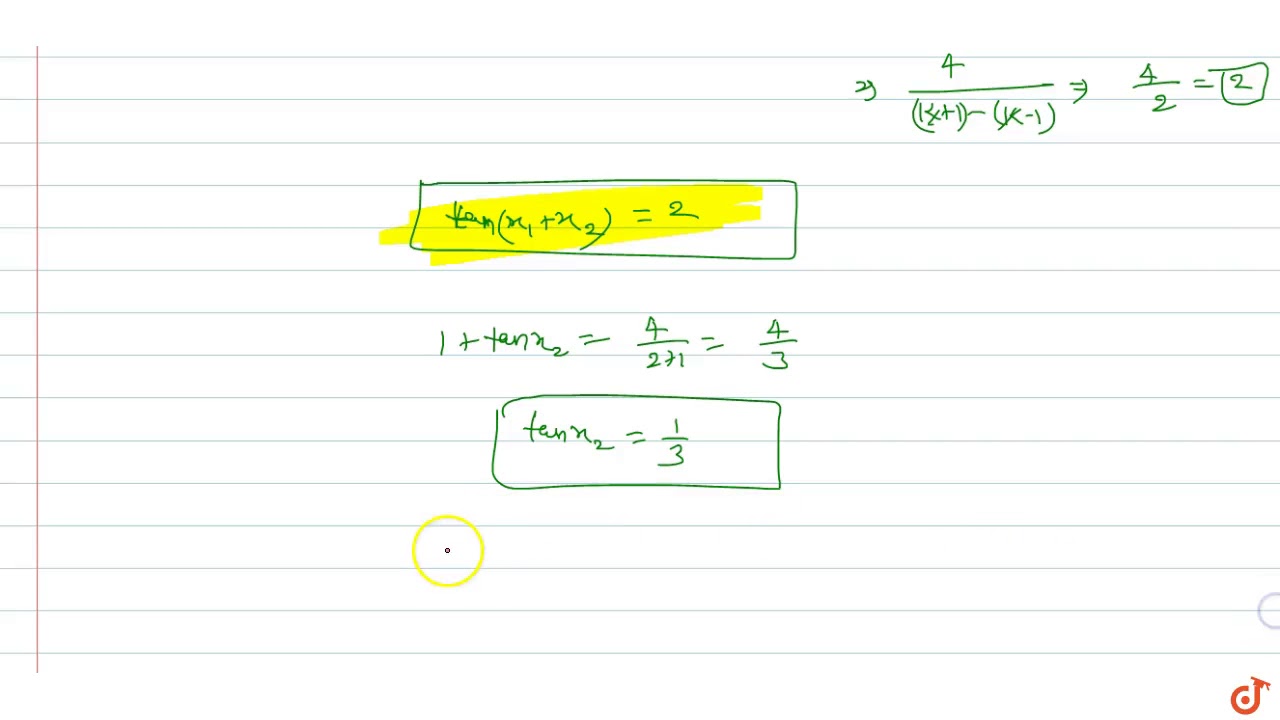 ⇒ 4/((k+1)-(k-1)) ⇒ 4/2 = 2
tan(x₁+x₂) = 2
1 + tan x₂ = 4/(2+1) = 4/3
tan x₂ = 1/3